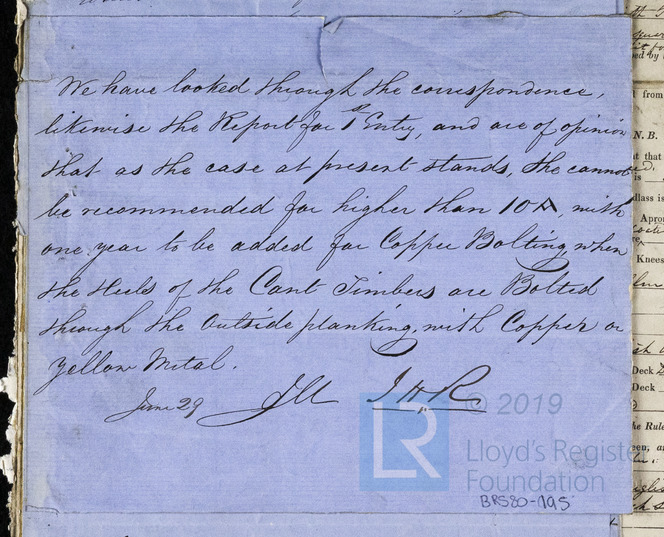 We have looked through the correspondence,
likewise the Report for 1st Entry, and are of opinion
that as the case at present stands, She cannot
be recommended for higher than 10 A, with
one year to be added for Copper Bolting, when
the Heels of the Cant Timbers are Bolted
through the Outside planking, with Copper or
Yellow Metal.
June 29 J H R
© 2019
LR
Lloyd's Registe
Foundation
BRS80-195
from
N.B.
that
is
Knees
Deck
Deck
he Rule